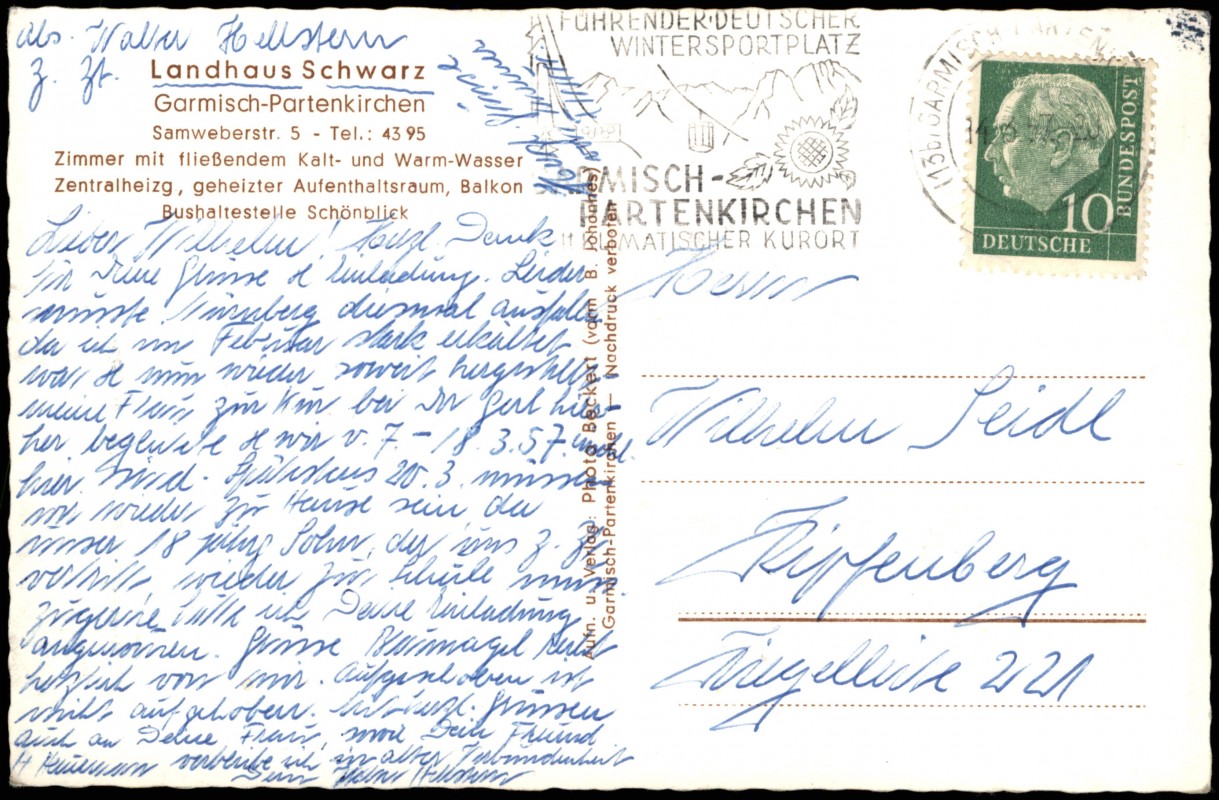 Abs. Walter Hellstern
z. Zt. Landhaus Schwarz
Garmisch-Partenkirchen
Samweberstr. 5 - Tel.: 43 95
Zimmer mit fließendem Kalt- und Warm-Wasser
Zentralheizg, geheizter Aufenthaltsraum, Balkon
Bushaltestelle Schönblick
Lieber Wilhelm! Herzl. Dank
für Deine Grüsse & Einladung. Leider
musste Nürnberg diesmal ausfallen
da ich im Februar stark erkältet
war & nun wieder soweit hergestellt
meine Frau zur Kur bei Dr Gerl hier-
her begleitete & wir v. 7 - 18.3.57.
hier sind. Spätestens 20.3. müssen
wir wieder zu Hause sein da
unser 18 jährg Sohn, der uns z. Zt.
vertritt, wieder zur Schule muss
zugerne hätte ich Deine Einladung
angenommen. Grüsse
herzlich von mir. Aufgeschoben ist
nicht aufgehoben. Mit herzl. Grüssen
auch an Deine Frau, sowie Dein Freund
verbleibe ich in alter Verbundenheit
Dein Walter Hellstern
Aufn. u. Verlag: Photo Beckert (vorm B. Johannes)
Garmisch-Partenkirchen — Nachdruck verboten
FÜHRENDER DEUTSCHER
WINTERSPORTPLATZ
MISCH-
PARTENKIRCHEN
KLIMATISCHER KURORT
(13b) GARMISCH-PARTEN
10
DEUTSCHE
BUNDESPOST
Herrn
Wilhelm Seidl
Kipfenberg
Ziegelleite 221